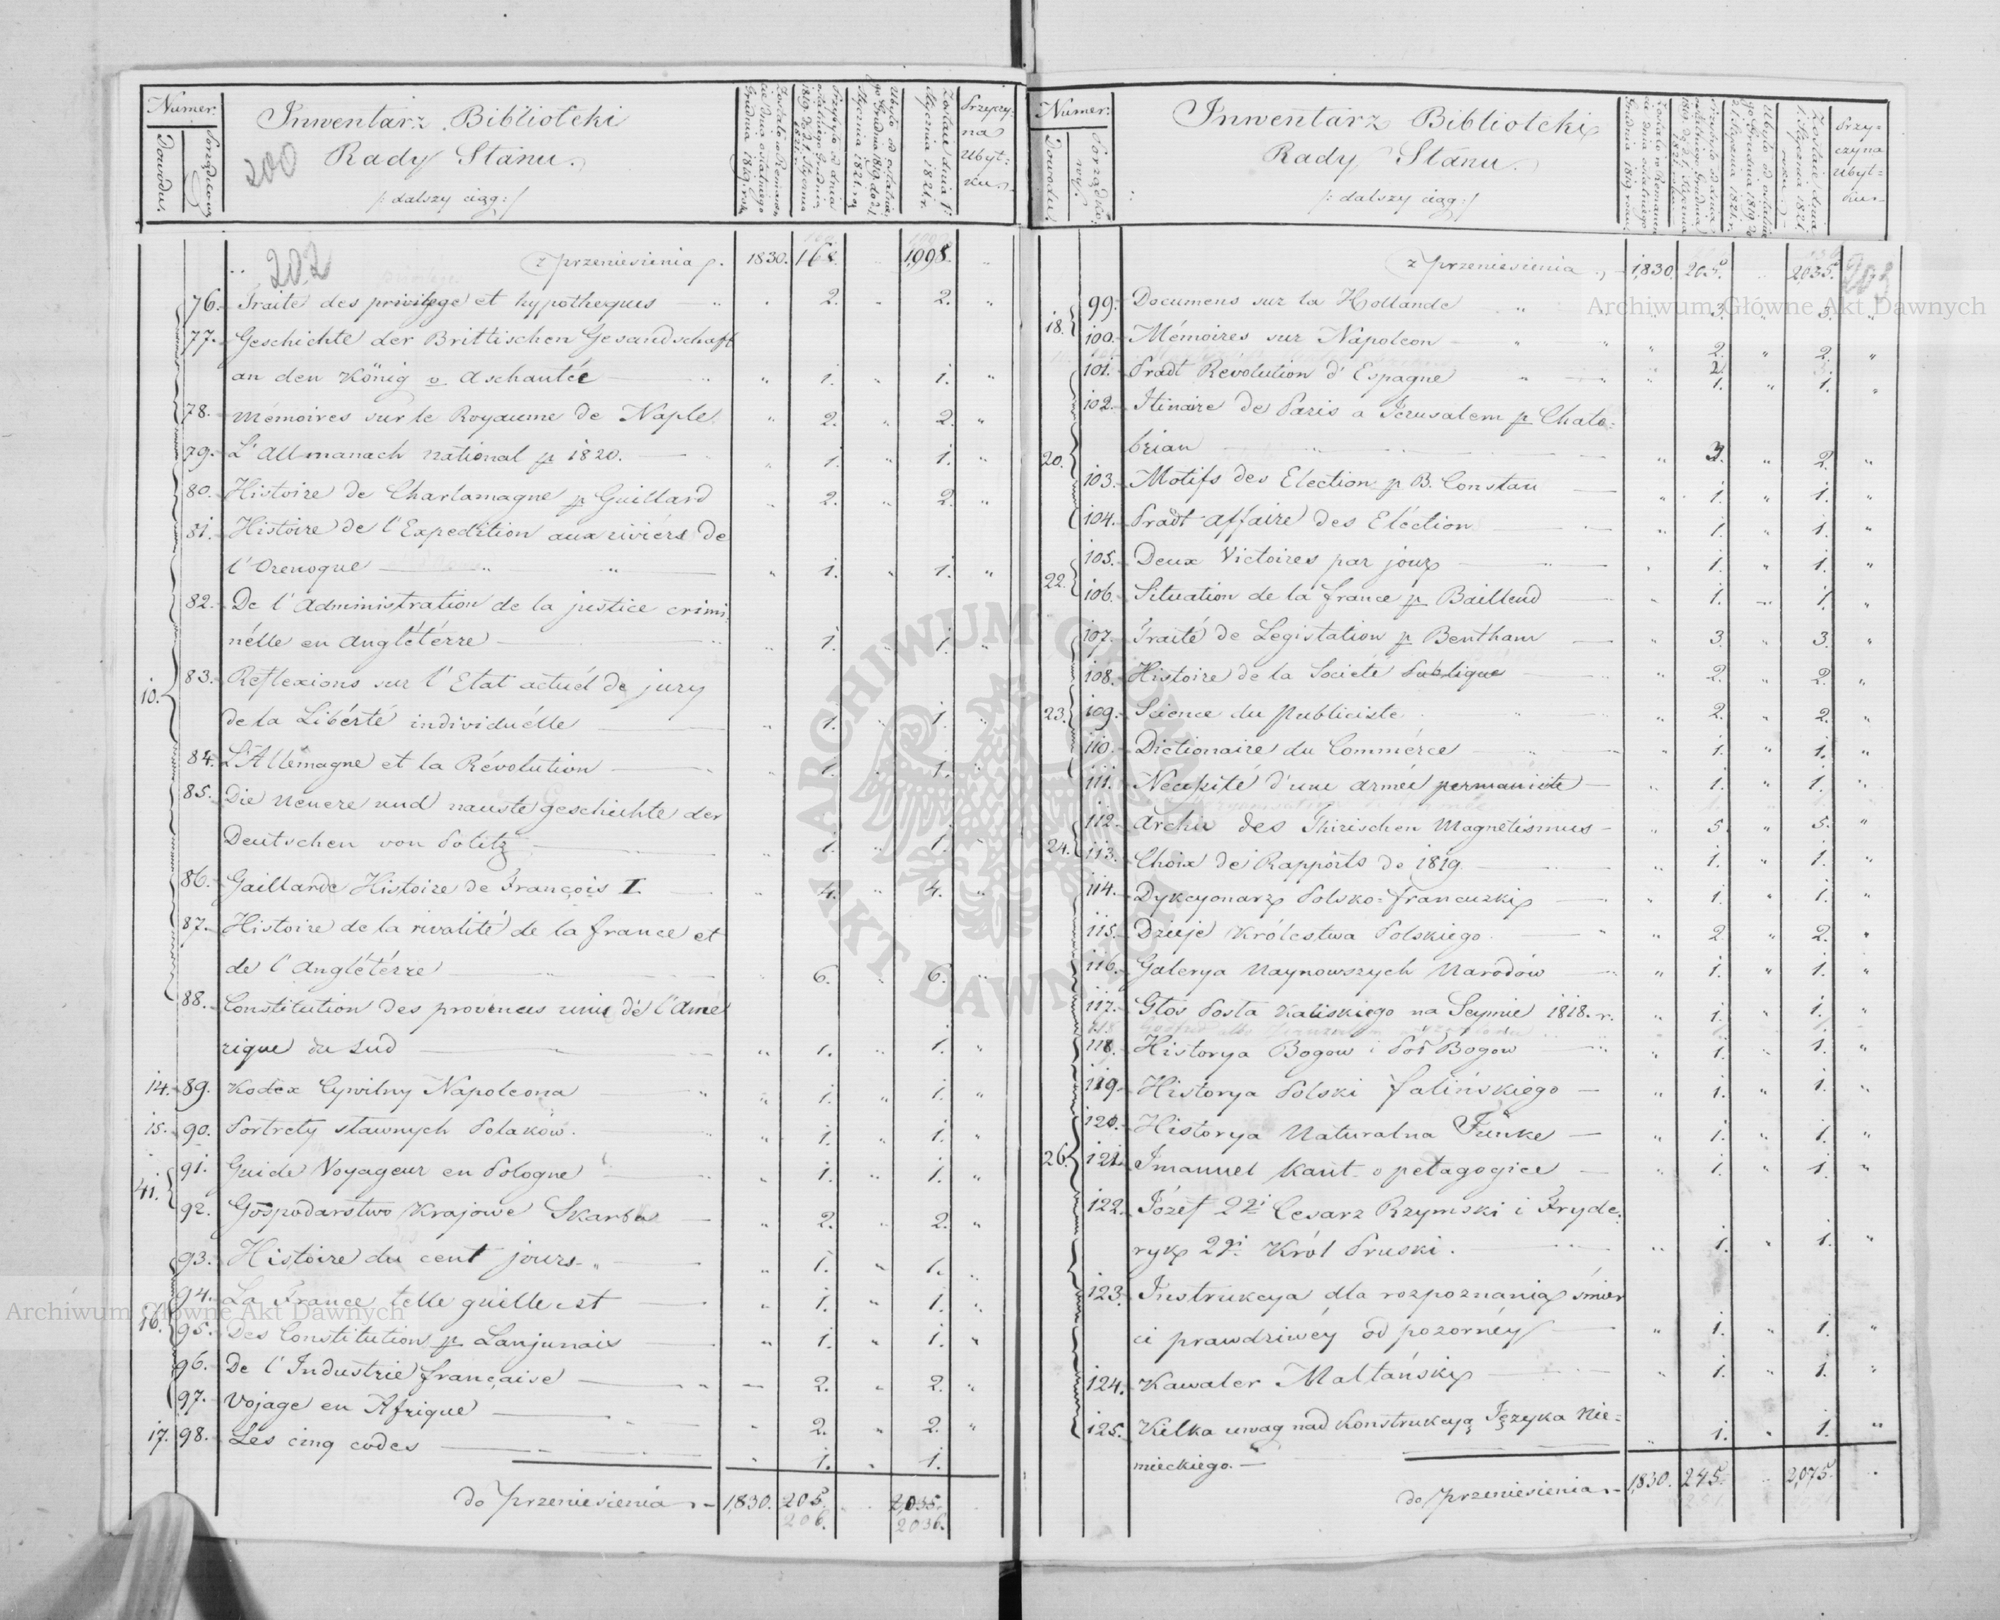 Numer.
Dowodu.
Porządkowy
Inwentarz Biblioteki
Rady Stanu.
/: dalszy ciąg :/
200
Przyczy-
na
Ubyt-
ku.
202
z przeniesienia . 1830. 168. 1998.
76. Traité des privilege et hypotheques 2. 2.
77. Geschichte der Brittischen Gesandschaft
an den König v. Aschantée 1. 1.
78. Mémoires sur le Royaume de Naple. 2. 2.
79. L'Allmanach national p 1820. 1. 1.
80. Histoire de Charlamagne p Guillard 2. 2.
81. Histoire de l'Expedition aux riviérs de
l'Orenoque 1. 1.
82. De l'Administration de la justice crimi
nélle en Anglétérre 1. 1.
10. 83. Reflexions sur l'Etat actuél de jury
de la Libérté individuélle 1. 1.
84. L'Allémagne et la Révolution 1. 1.
85. Die neuere und nauste geschichte der
Deutschen von Politz 1. 1.
86. Gaillarde Histoire de François I. 4. 4.
87. Histoire de la rivalité de la france et
de l'Anglétérre 6. 6.
88. Constitution des provences unie dé l'Ame
rique du Sud 1. 1.
14. 89. Kodex Cywilny Napoleona 1. 1.
15. 90. Portrety sławnych Polaków. 1. 1.
41. 91. Guide Voyageur en Pologne 1. 1.
92. Gospodarstwo Krajowe Skarba 2. 2.
93. Histoire du cent jours 1. 1.
94. La France telle quille est 1. 1.
16. 95. Des Constitution p Lanjunais 1. 1.
96. De l'Industrie française 2. 2.
97. Vojage en Afrique 2. 2.
17. 98. Les cinq codes 1. 1.
do przeniesienia 1,830. 205. 2,035.
206. 2036.
Numer.
Dowodu.
Porządko-
wy.
Inwentarz Biblioteki
Rady Stanu.
/: dalszy ciąg :/
Przy-
czyna
Ubyt-
ku.
z przeniesienia 1,830. 205. 2,035. 203
99. Documens sur la Hollande 3. 3.
18. 100. Mémoires sur Napoleon 2. 2.
101. Pradt Révolution d'Espagne 1. 1.
102. Itinaire de Paris a Jerusalem p Chato-
20. brian 3. 2.
103. Motifs des Election p B. Constan 1. 1.
104. Pradt affaire des Eléction 1. 1.
105. Deux Victoires par jour 1. 1.
22. 106. Situation de la france p Bailleud 1. 1.
107. Traité de Legistation p Bentham 3. 3.
108. Histoire de la Societé Publique 2. 2.
23. 109. Science du Publiciste 2. 2.
110. Dictionaire du Commérce 1. 1.
111. Necessité d'une armée permaniete 1. 1.
112. Archiv des Thirischen Magnetismus 5. 5.
24. 113. Choix de Rapports de 1819 1. 1.
114. Dykcyonarz Polsko-francuzki 1. 1.
115. Dzieje Królestwa Polskiego 2. 2.
116. Galerya Naynowszych Narodów 1. 1.
117. Głos Posła Kaliskiego na Seymie 1818. r. 1. 1.
118. Historya Bogow i Poł Bogow 1. 1.
119. Historya Polski falińskiego 1. 1.
120. Historya Naturalna Funke 1. 1.
26. 121. Imanuel Kant o petagogice 1. 1.
122. Józef 2gi Cesarz Rzymski i Fryde-
ryk 2gi Król Pruski. 1. 1.
123. Instrukcya dla rozpoznania śmier
ci prawdziwéy od pozornéy 1. 1.
124. Kawaler Maltański 1. 1.
125. Kilka uwag nad Konstrukcyą Języka Nie-
mieckiego. 1. 1.
do przeniesienia 1,830. 245. 2,075.
Archiwum Główne Akt Dawnych
Archiwum Główne Akt Dawnych
ARCHIWUM GŁÓWNE
AKT DAWNYCH